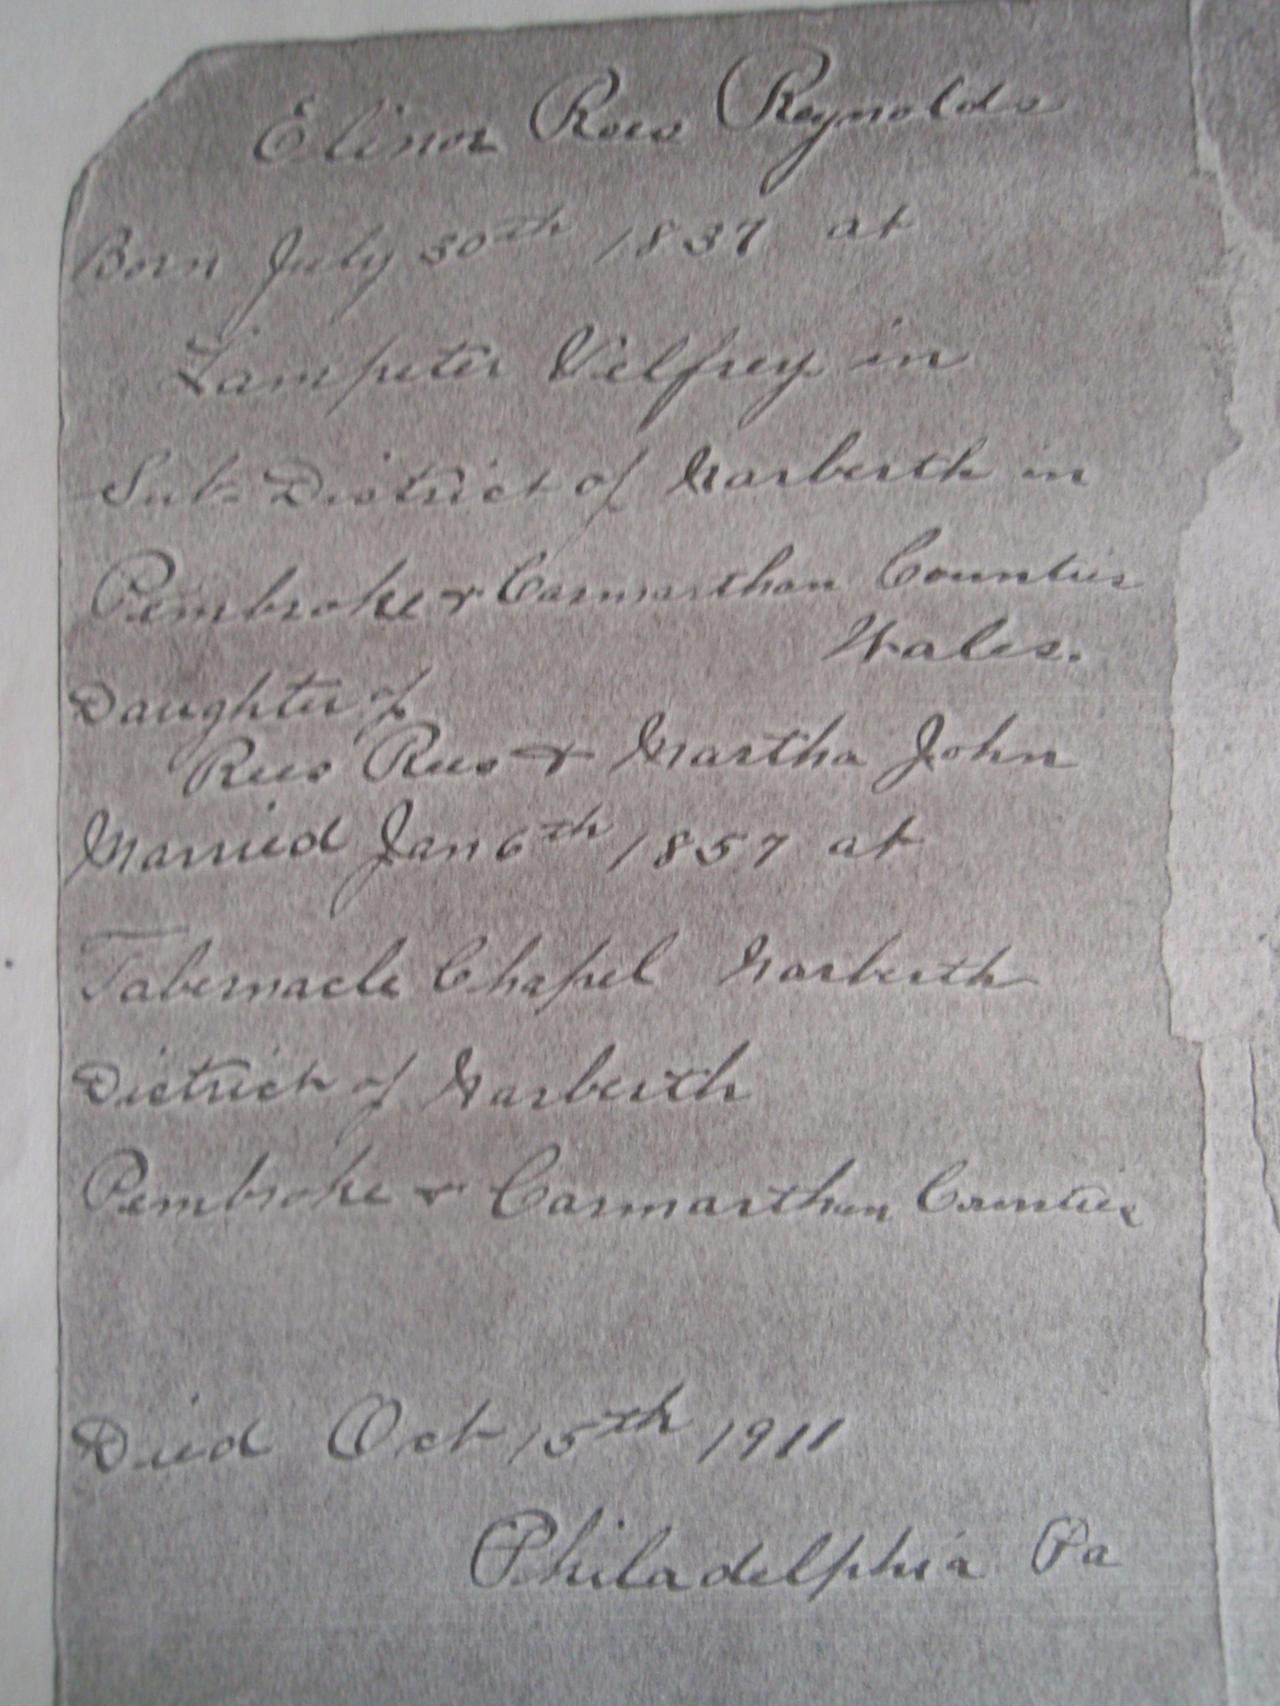 Elinor Rees Reynolds
Born July 30th 1837 at
Lampeter Vilfrey in
Sub-District of Narberth in
Pembroke & Carmarthan Counties
Wales.
Daughter of
Rees Rees & Martha John
Married Jan 6th 1857 at
Tabernacle Chapel Narberth
District of Narberth
Pembroke & Carmarthan Counties
Died Oct 15th 1911
Philadelphia Pa